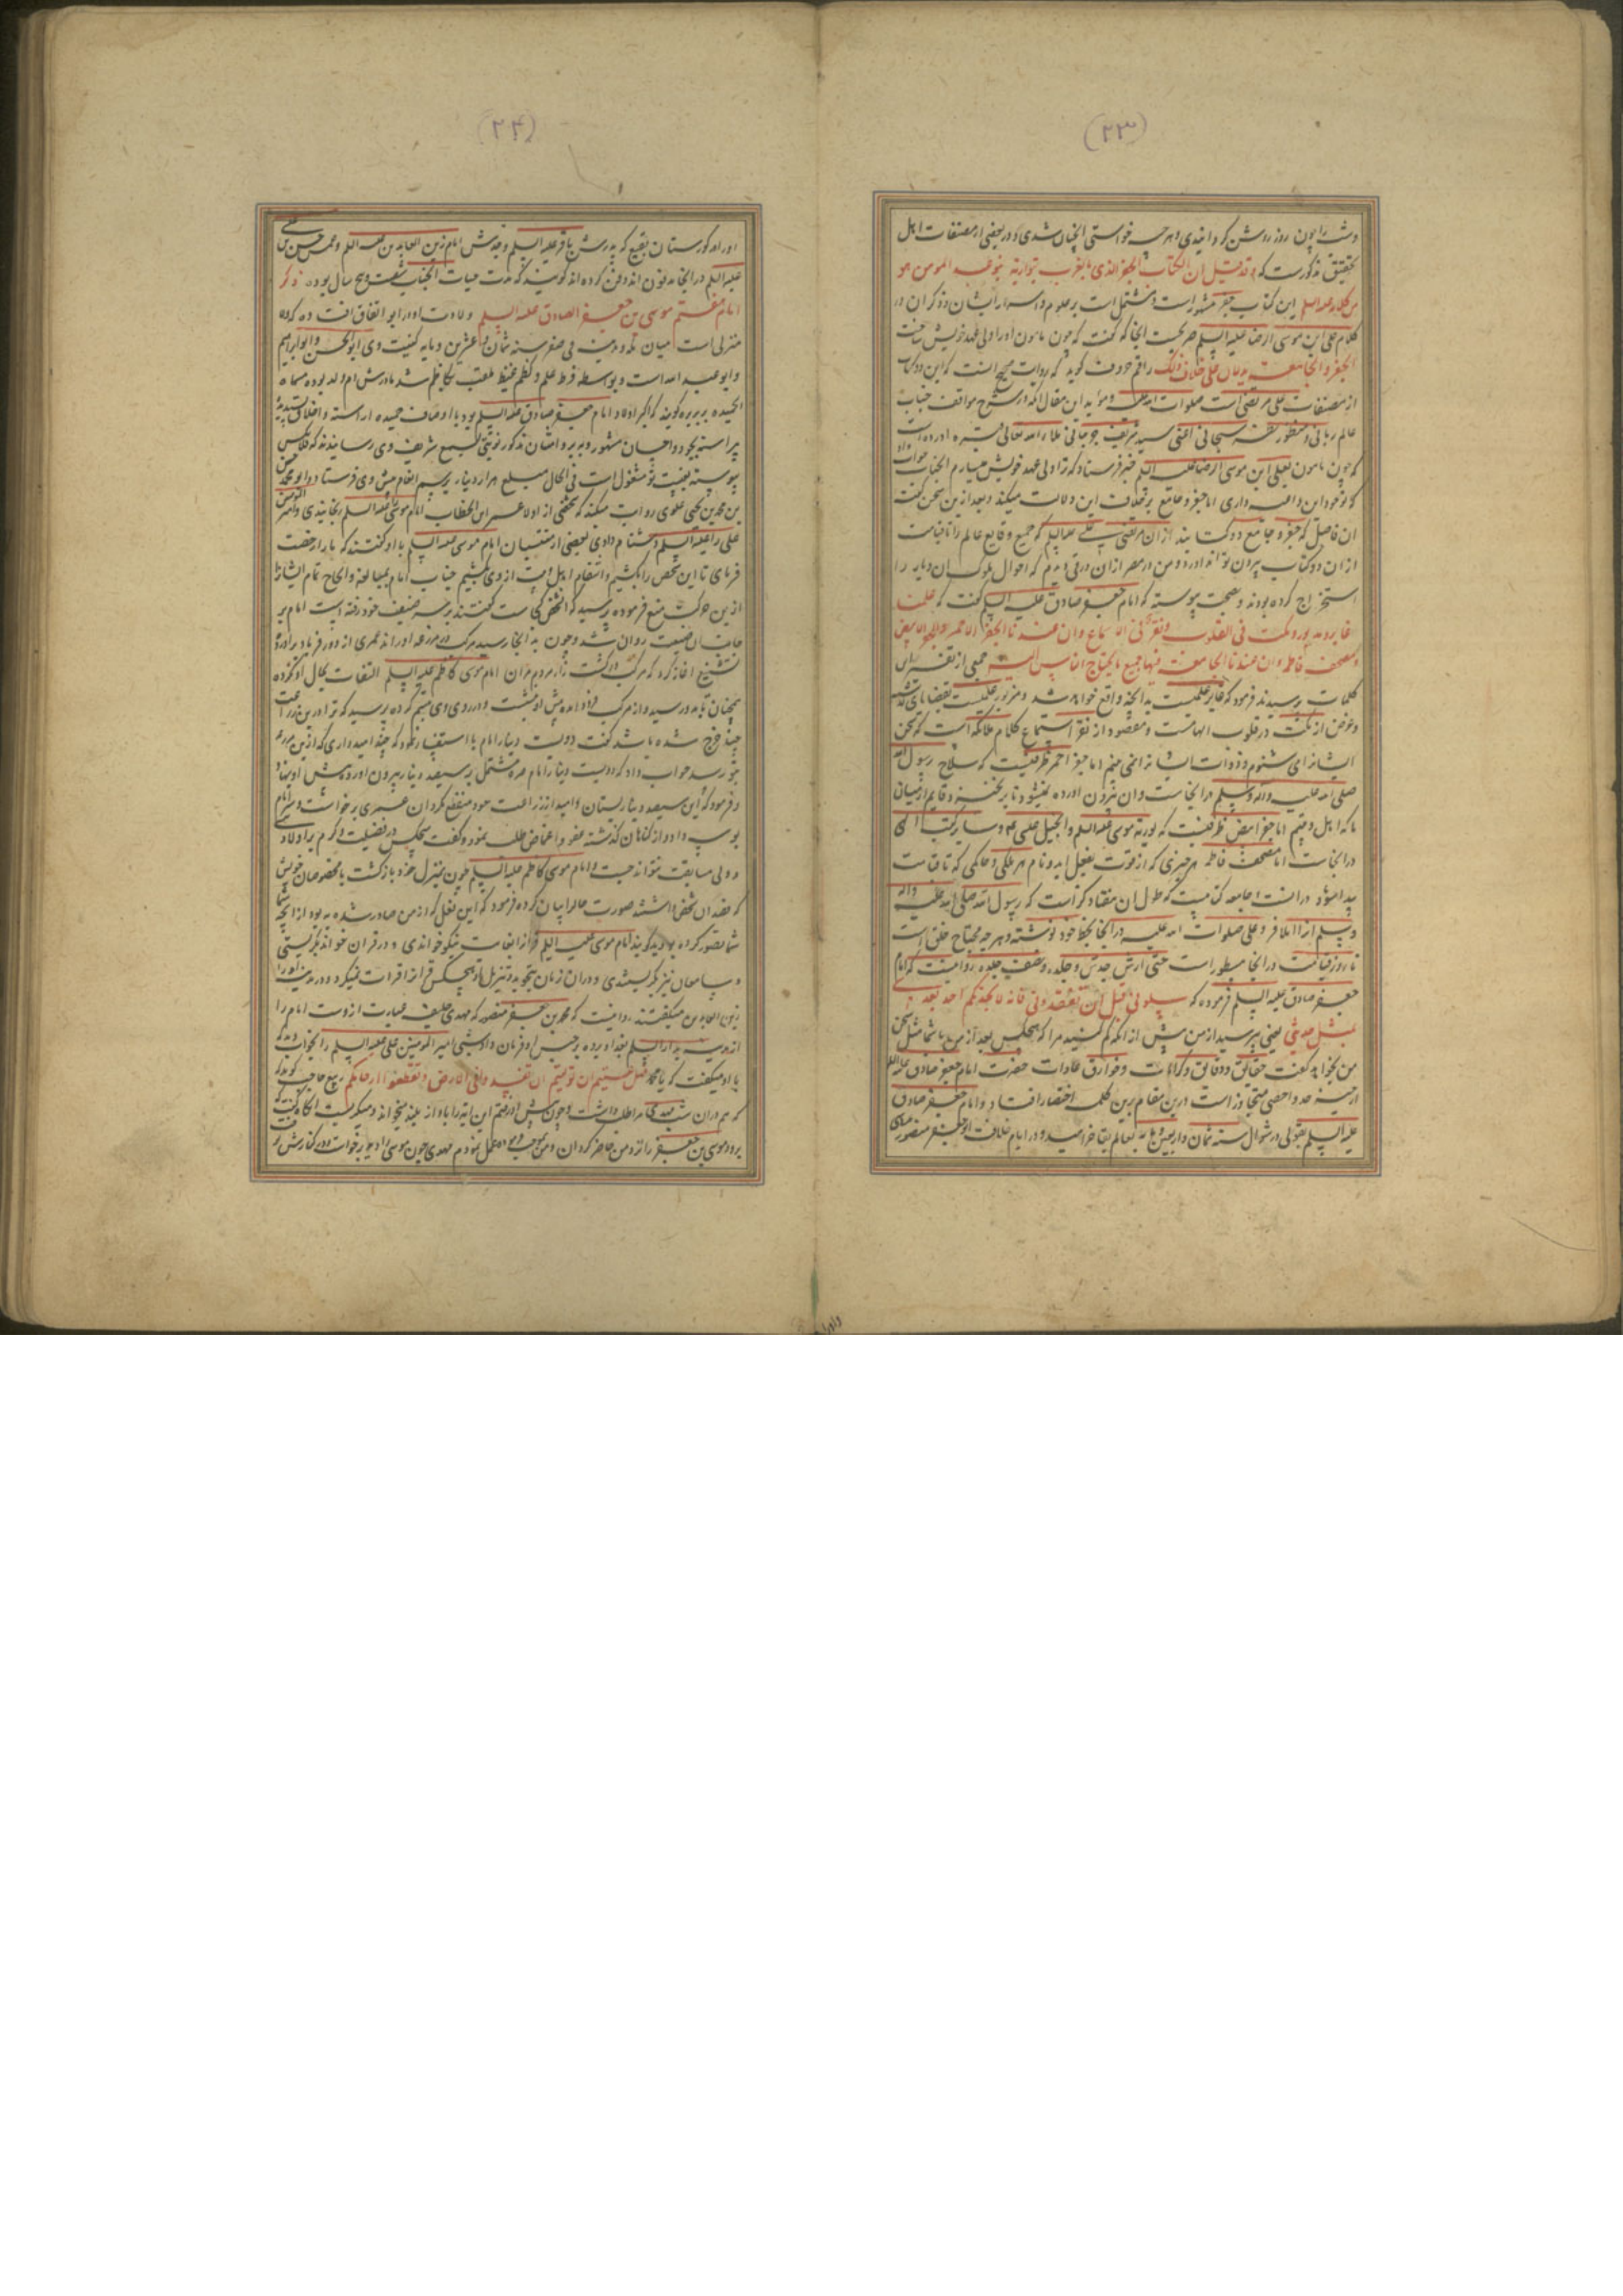 (۲۳)
وشب را چون روز روشن گردانیدی و هرچه خواستی انچنان شدی و در بعضی از مصنفات اهل
تحقیق مذکورست که قد قیل ان الکتاب الجفر الذی بالغرب یتوارثه بنو عبد المومن هو
من کلامه علیه السلم این کتاب جفر مشهور است و مشتمل است بر علوم و اسرار ایشان و ذکر ان در
کلام علی ابن موسی الرضا علیه السلم صریحست انجا که گفت که چون مامون او را ولی عهد خویش ساخت
الجفر و الجامعة یدلان علی خلاف ذلک راقم حروف گوید که روایت صحیح انست که این دو کتاب
از مصنفات علی مرتضی است صلوات الله علیه و مؤید این مقال انکه در شرح مواقف جناب
عالم ربانی و منظور نظر سبحانی اعنی سید شریف جرجانی علیه رحمة الله تعالی اورده است
که چون مامون بعلی ابن موسی الرضا علیه السلم خبر فرستاد که ترا ولی عهد خویش میسازم انجناب جواب داد
که تو خود این داعیه داری اما جفر و جامع بر خلاف این دلالت میکند و بعد ازین سخن گفت
ان فاضل که جفر و جامع دو کتاب اند از ان مرتضی علی علیه السلم که جمیع وقایع عالم را تا قیامت
از ان دو کتاب بیرون توانند اورد و من در مصر از ان ورقی دیدم که احوال ملوک ان دیار را
استخراج کرده بودند و بصحت پیوسته که امام جعفر صادق علیه السلم گفت که علمنا
غابر و مزبور و نکت فی القلوب و نقر فی الاسماع و ان عندنا الجفر الاحمر و الجفر الابیض
و مصحف فاطمه و ان عندنا الجامعة فیها جمیع ما یحتاج الناس الیه جمعی از تفسیر این
کلمات پرسیدند فرمود که غابر علمیست بدانچه واقع خواهد شد و مزبور علمیست بقضایای گذشته
و غرض از نکت در قلوب الهامست و مقصود از نقر استماع کلام ملائکه است که سخن
ایشان را می شنوم و ذوات ایشان را نمی بینم اما جفر احمر ظرفیست که سلاح رسول الله
صلی الله علیه و اله و سلم در انجاست و ان بیرون اورده نمیشود تا برنخیزد قایم از میان
ما که اهل بیتیم اما جفر ابیض ظرفیست که توریة موسی علیه السلم و انجیل عیسی و سایر کتب الهی
در انجاست اما مصحف فاطمه هر چیزی که از قوت بفعل اید و نام هر ملکی و حاکمی که تا قیامت
پیدا شود در انست و جامعه کتابیست که طول ان هفتاد گز است که رسول الله صلی الله علیه و اله
و سلم انرا املا فرمود و علی صلوات الله علیه در انجا بخط خود نوشته و هرچه محتاج خلق است
تا روز قیامت در انجا مسطور است حتی ارش خدش و جلده و نصف جلده روایتست که امام
جعفر صادق علیه السلم فرموده که سلونی قبل ان تفقدونی فانه لا یحدثکم احد بعدی
بمثل حدیثی یعنی بپرسید از من پیش از انکه گم کنید مرا که هیچکس بعد از من با شما مثل سخن
من نخواهد گفت حقایق و دقایق و کرامات و خوارق عادات حضرت امام جعفر صادق علیه السلم
از حیز عد و احصی متجاوز است درین مقام برین کلمه اختصار افتاد و امام جعفر صادق
علیه السلم بقولی در شوال سنه ثمان و اربعین و مایه بعالم بقا خرامید و در ایام خلافت ابو جعفر منصور
(۲۴)
او را در گورستان بقیع که پدرش باقر علیه السلم و جدش امام زین العابدین علیه السلم و عمش حسن بن علی
علیه السلم در انجا مدفون اند دفن کرده اند گویند که مدت حیات انجناب شصت و پنج سال بوده ذکر
امام هفتم موسی بن جعفر الصادق علیه السلم ولادت او در ابوا اتفاق افتاده که
منزلی است میان مکه و مدینه فی صفر سنه ثمان و عشرین و مایه کنیت وی ابو الحسن و ابو ابراهیم
و ابو عبد الله است و بواسطه فرط علم و کظم غیظ ملقب بکاظم شد مادرش ام ولد بوده مسماة
الحمیده بربریه گویند که اکبر اولاد امام جعفر صادق علیه السلم بود باوصاف حمیده اراسته و اخلاق پسندیده
پیراسته بجود و احسان مشهور و به بر و امتنان مذکور نوبتی بسمع شریف وی رسانیدند که فلان کس
پیوسته بغیبت تو مشغول است فی الحال مبلغ هزار دینار برسم انعام پیش وی فرستاد و ابو محمد حسن
بن محمد بن یحیی علوی روایت میکند که شخصی از اولاد عمر ابن الخطاب امام موسی علیه السلم را برنجانیدی و امیر المومنین
علی را علیه السلم دشنام دادی بعضی از منتسبان امام موسی علیه السلم با او گفتند که ما را رخصت
فرمای تا این شخص را بکشیم و انتقام اهل بیت از وی بکشیم جناب امام بمبالغه و الحاح تمام ایشان را
ازین حرکت منع فرموده پرسید که انشخص کجاست گفتند بر سر ضیعت خود رفته است امام بر
جانب ان ضیعت روان شد و چون به انجا رسید مرکب در مزرعه او راند عمری از دور فریاد براورد
تشنیع اغاز کرد که مرکب در کشت زار مردم مران امام موسی کاظم علیه السلم التفات بحال او نکرده
همچنان تا بدو رسید و از مرکب فرود امده پیش او نشست و در روی وی تبسم کرده پرسید که ترا درین زراعت
چند خرج شده باشد گفت دویست دینار امام با استفسار نمود که چند امیدواری که ازین مزرعه
بتو رسد جواب داد که دویست دینار امام صره مشتمل بر سیصد دینار بیرون اورده پیش او نهاد
و فرمود که این سیصد دینار بستان و امید از زراعت خود منقطع مگردان عمری برخاست و سر امام
بوسه داد و از گناهان گذشته عفو و اغماض طلب نمود و گفت هیچکس در فضیلت و کرم بر اولاد
و ولی مسابقت نتواند جست و امام موسی کاظم علیه السلم چون بمنزل خود بازگشت با مخصوصان خویش
که قصد ان شخص داشتند صورت حال را بیان کرده فرمود که این فعل که از من صادر شده به بود از انچه شما
تصور کرده بودید گویند امام موسی علیه السلم قران را بغایت نیکو خواندی و در قران خواندن بگریستی
و سامعان نیز بگریستندی و دران زمان بتجوید و ترتیل او هیچکس قران را قرات نمیکرد و در مدینه او را
زین العابدین میگفتند روایتست که محمد بن جعفر منصور که مهدی خلیفه عبارت ازوست امام را
از مدینه به دار السلم بغداد برده بر حبس او فرمان داد شبی امیر المومنین علی علیه السلم را بخواب دید که
با او میگفت که یا محمد فهل عسیتم ان تولیتم ان تفسدوا فی الارض و تقطعوا ارحامکم ربیع حاجب گوید
که هم دران شب مهدی مرا طلب داشت و چون پیش او رفتم این ایه را باواز بلند میخواند و میگریست انگاه گفت
برو و موسی بن جعفر را نزد من حاضر گردان و من بموجب فرموده عمل نمودم مهدی چون موسی را دید برخاست و در کنارش گرفت